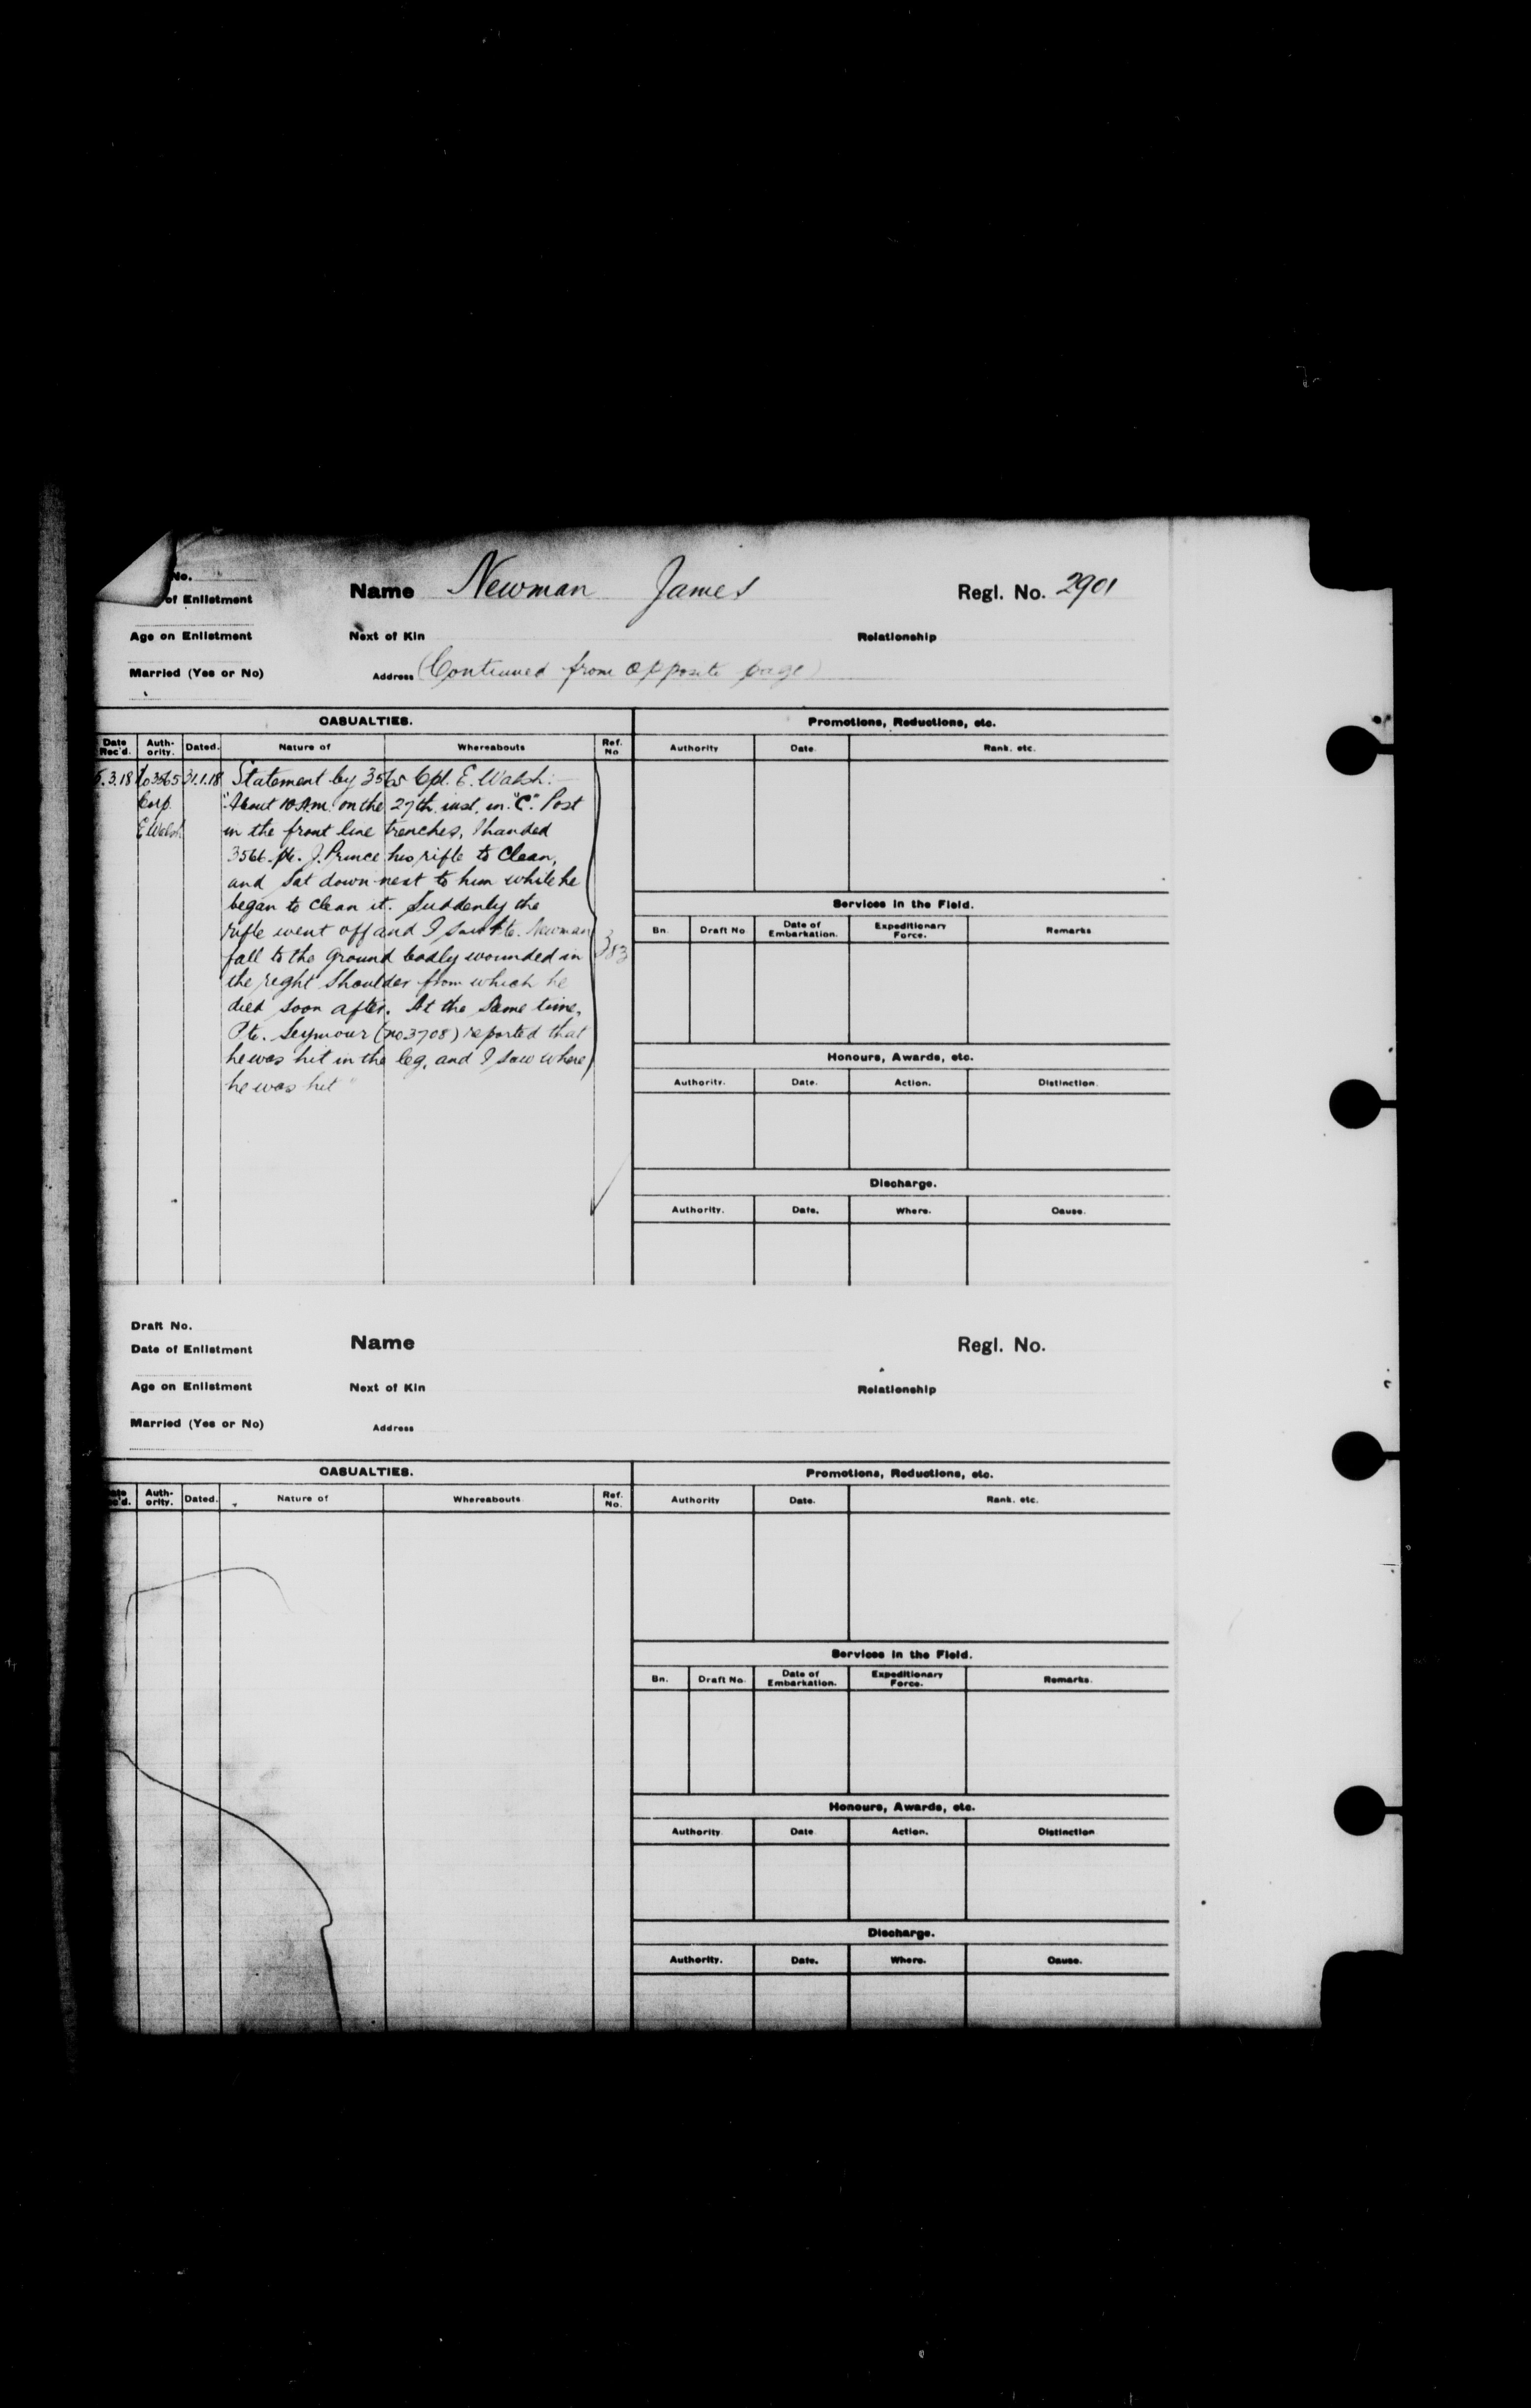 No.
of Enlistment
Name Newman James
Regl. No. 2901
Age on Enlistment
Next of Kin
Relationship
Married (Yes or No)
Address (Continued from opposite page)
CASUALTIES.
Promotions, Reductions, etc.
Date Rec'd. Auth-ority. Dated. Nature of Whereabouts Ref. No
Authority Date. Rank. etc.
5.3.18 No3565 31.1.18 Statement by 3565 Cpl. E. Walsh:—
Corp. "About 10 A.m. on the 27th inst. in "C" Post
E Walsh in the front line trenches, I handed
3566. Pte. J. Prince his rifle to clean,
and sat down next to him while he
began to clean it. Suddenly the
rifle went off and I saw Pte. Newman
fall to the ground badly wounded in 383
the right shoulder from which he
died soon after. At the same time,
Pte. Seymour (no 3708) reported that
he was hit in the leg, and I saw where
he was hit"
Services in the Field.
Bn. Draft No Date of Embarkation. Expeditionary Force. Remarks
Honours, Awards, etc.
Authority. Date. Action. Distinction.
Discharge.
Authority. Date. Where. Cause.
Draft No.
Date of Enlistment
Name
Regl. No.
Age on Enlistment
Next of Kin
Relationship
Married (Yes or No)
Address
CASUALTIES.
Promotions, Reductions, etc.
Auth-ority. Dated. Nature of Whereabouts Ref. No.
Authority Date. Rank. etc.
Services in the Field.
Bn. Draft No. Date of Embarkation. Expeditionary Force. Remarks.
Honours, Awards, etc.
Authority. Date Action. Distinction
Discharge.
Authority. Date. Where. Cause.